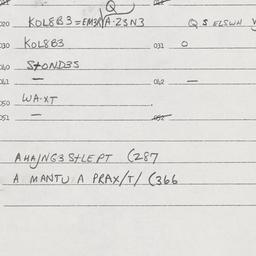 020 KOL8B3=EM3(A-ZSN3 Q S ELSWH
030 KOL8B3 031 O
040 StOND3S
041 — 042 —
050 WA-XT
051 — 052
AHAJNG3 StLEPT (287
A MANTU A PRAX/T/ (366